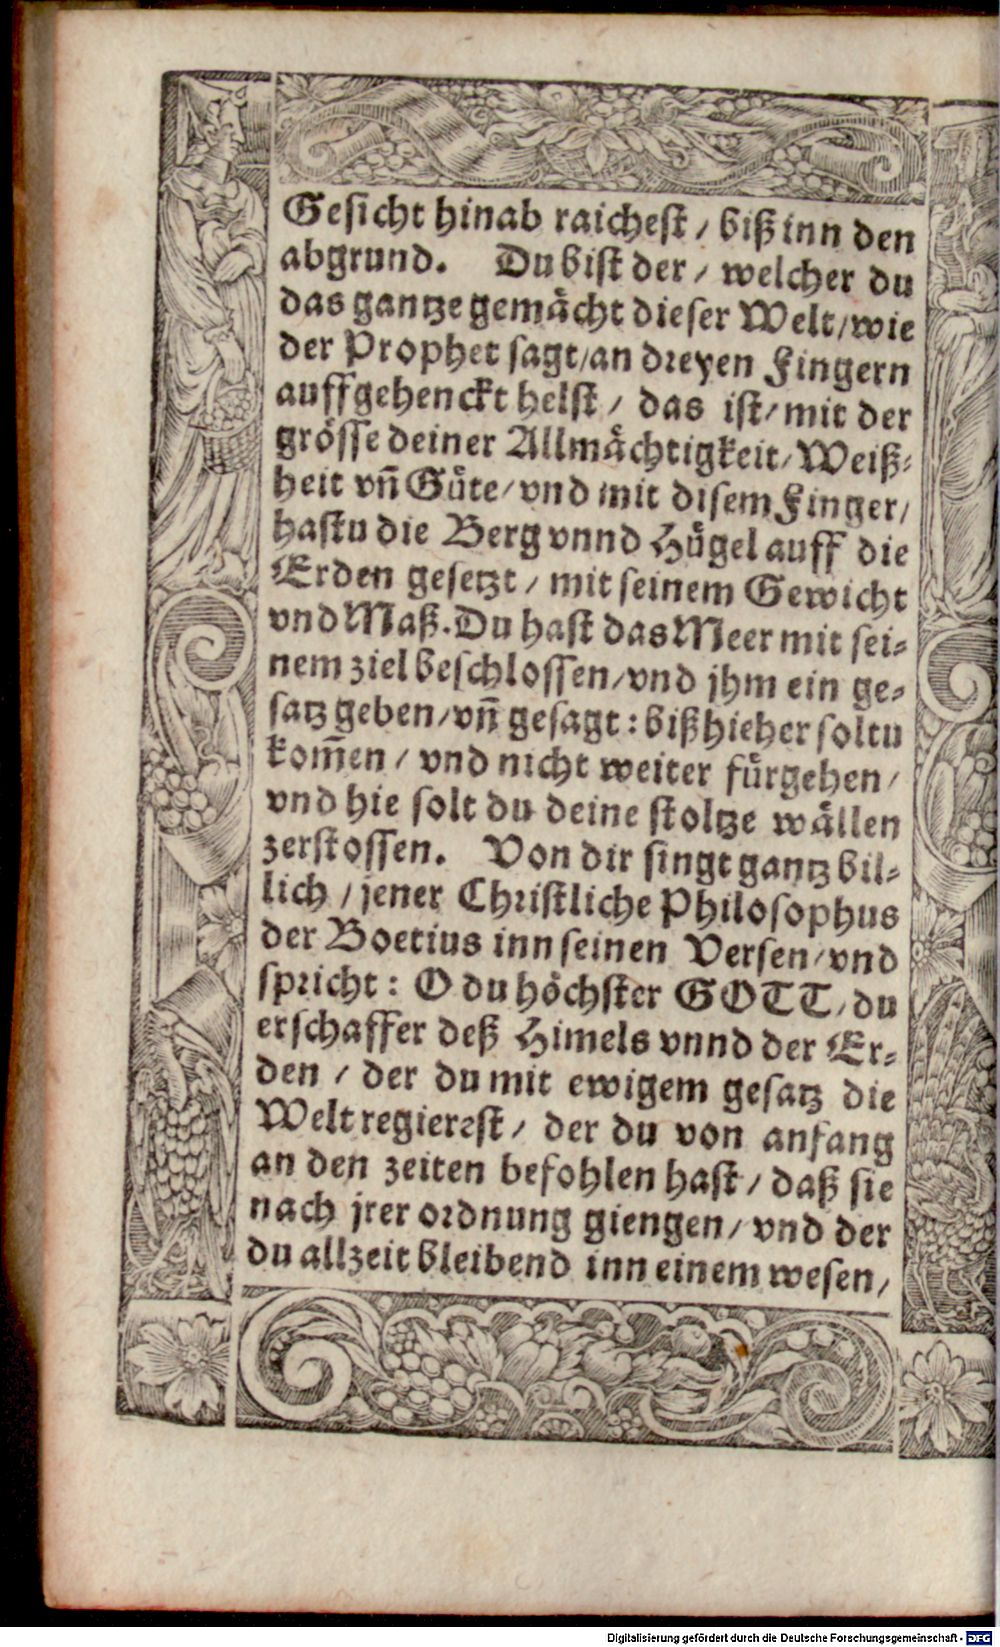 Gesicht hinab raichest / biß inn den
abgrund. Du bist der / welcher du
das gantze gemaͤcht dieser Welt / wie
der Prophet sagt / an dreyen Fingern
auffgehenckt helst / das ist / mit der
groͤsse deiner Allmaͤchtigkeit / Weiß-
heit vñ Guͤte / vnd mit disem Finger /
hastu die Berg vnnd Huͤgel auff die
Erden gesetzt / mit seinem Gewicht
vnd Maß. Du hast das Meer mit sei-
nem ziel beschlossen / vnd jhm ein ge-
satz geben / vñ gesagt : biß hieher soltu
kom̃en / vnd nicht weiter fuͤrgehen /
vnd hie solt du deine stoltze waͤllen
zerstossen. Von dir singt gantz bil-
lich / jener Christliche Philosophus
der Boetius inn seinen Versen / vnd
spricht : O du hoͤchster GOTT / du
erschaffer deß Himels vnnd der Er-
den / der du mit ewigem gesatz die
Welt regierest / der du von anfang
an den zeiten befohlen hast / daß sie
nach jrer ordnung giengen / vnd der
du allzeit bleibend inn einem wesen /
Digitalisierung gefördert durch die Deutsche Forschungsgemeinschaft - DFG